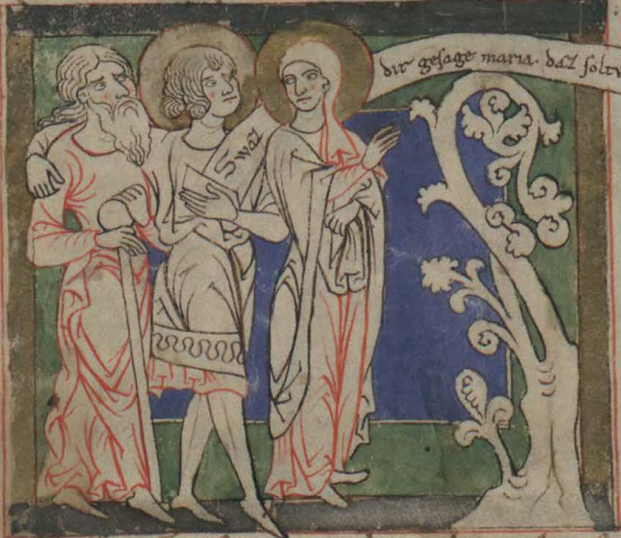 Swaz
dir gesage maria. daz soltv